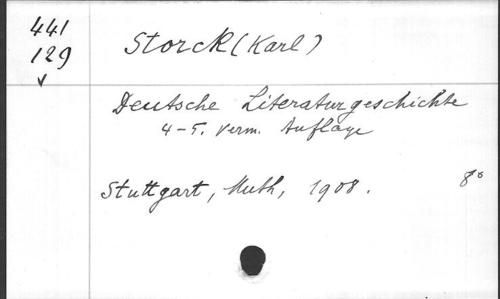 441
129
Storck (Karl)
Deutsche Literaturgeschichte
4-5. verm. Auflage
Stuttgart, Muth, 1908. 8°